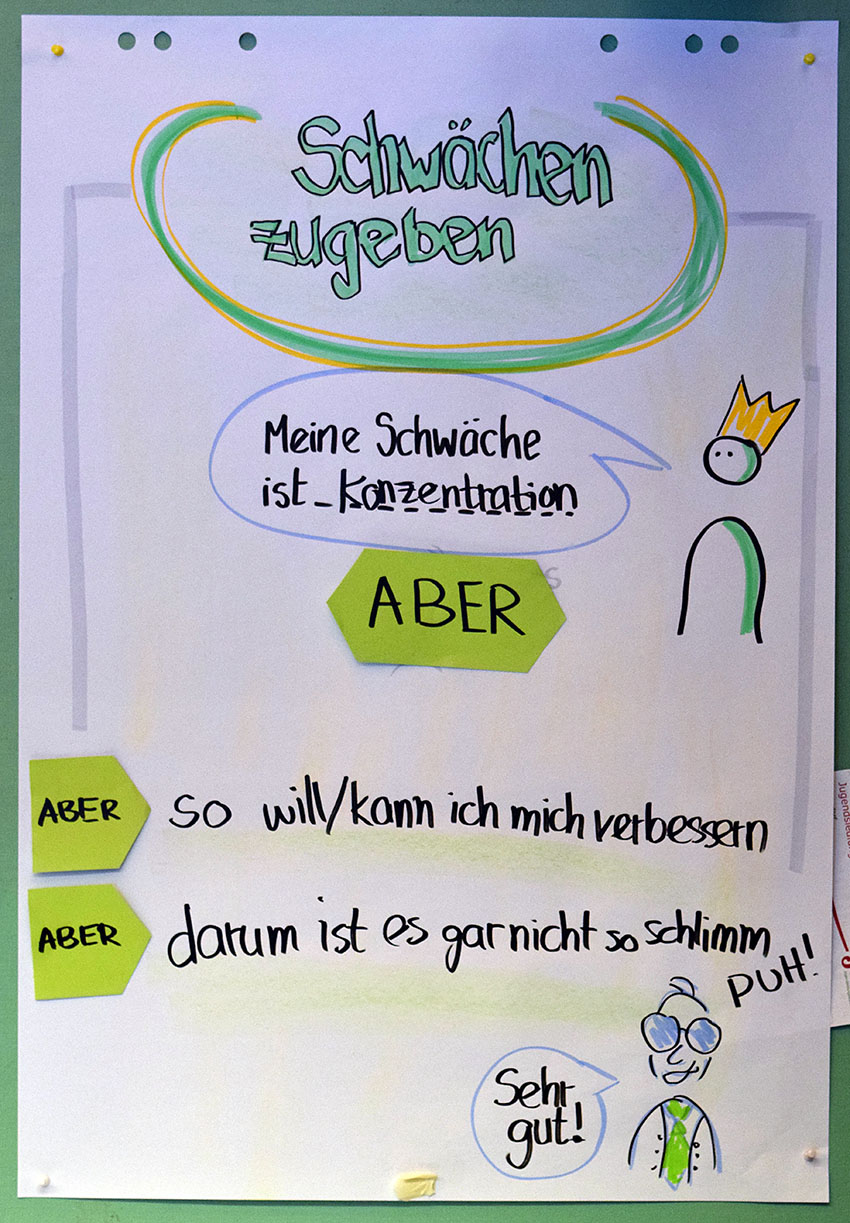 Schwächen
zugeben
Meine Schwäche
ist Konzentration
ABER
ABER so will/kann ich mich verbessern
ABER darum ist es gar nicht so schlimm
PUH!
Sehr
gut!